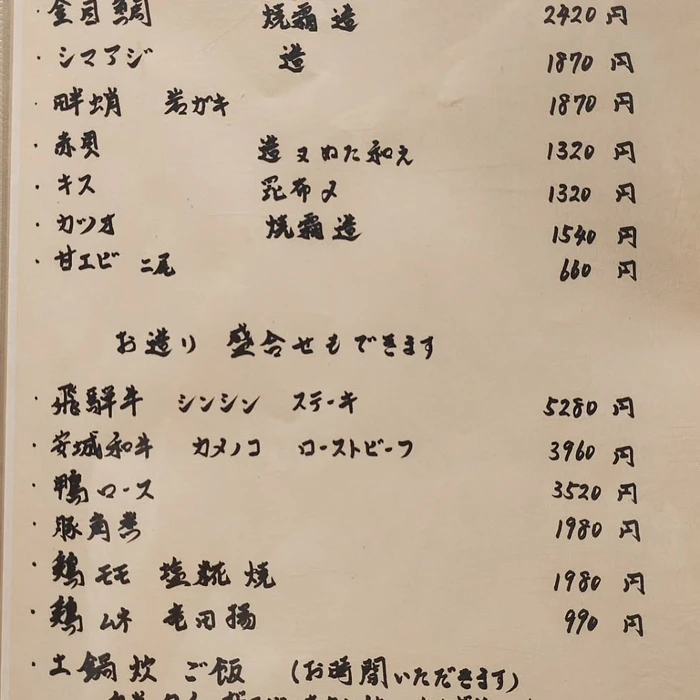 ・金目鯛 焼霜造 2420円
・シマアジ 造 1870円
・畔蛸 岩ガキ 1870円
・赤貝 造又ぬた和え 1320円
・キス 昆布〆 1320円
・カツオ 焼霜造 1540円
・甘エビ 二尾 660円
お造り 盛合せもできます
・飛騨牛 シンシン ステーキ 5280円
・安城和牛 カメノコ ローストビーフ 3960円
・鴨ロース 3520円
・豚角煮 1980円
・鶏モモ 塩糀焼 1980円
・鶏ムネ 竜田揚 990円
・土鍋炊ご飯 (お時間いただきます)